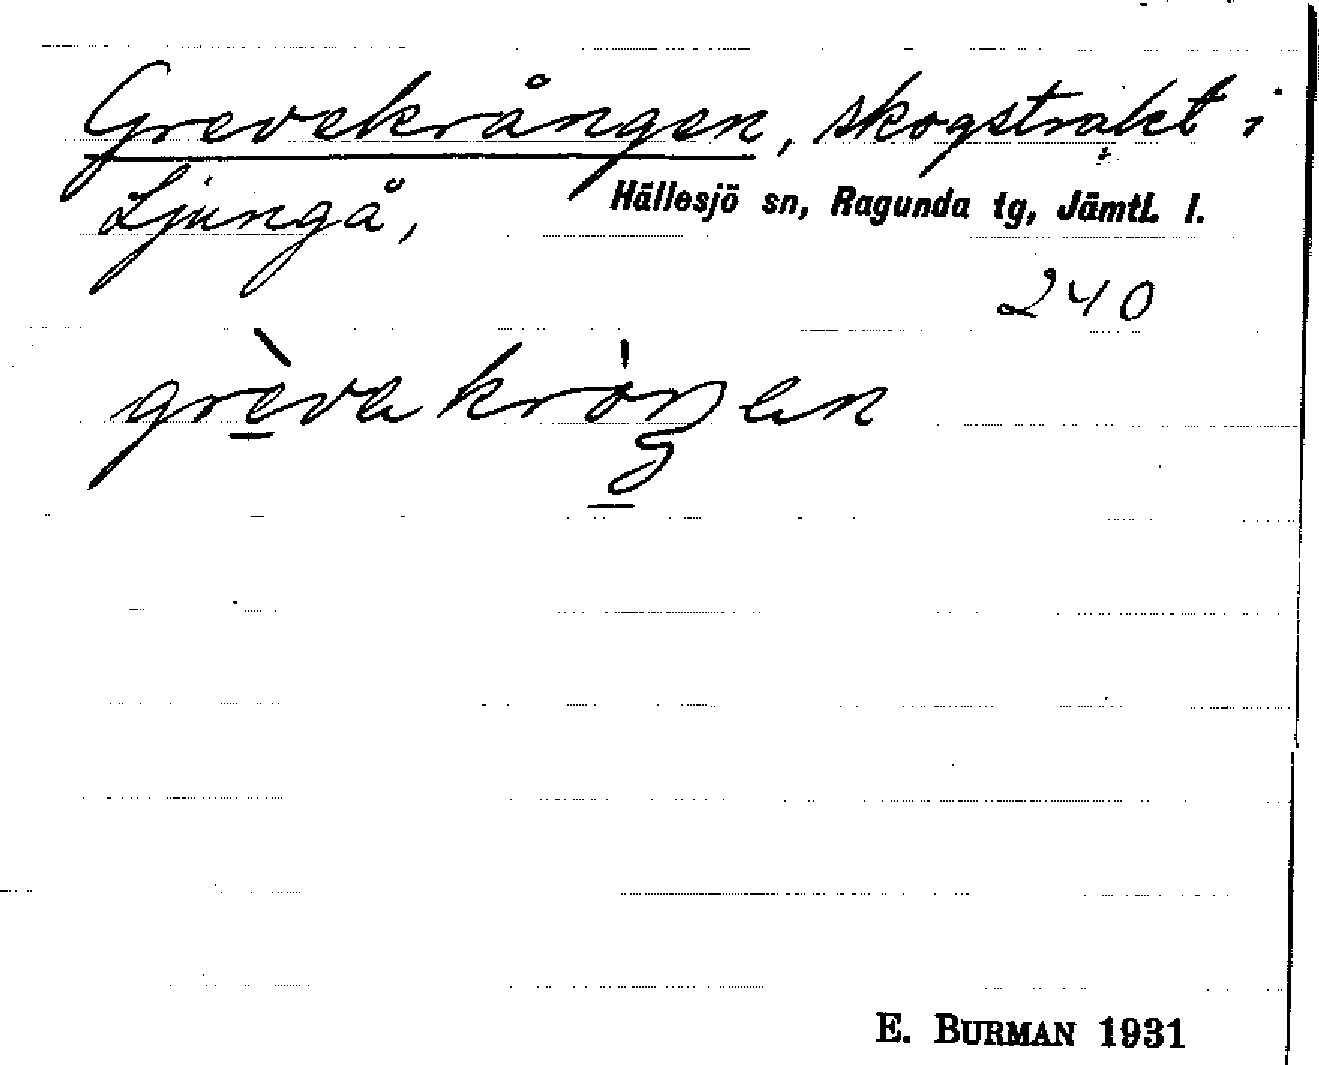 Grevekrången, skogstrakt i
Ljungå, Hällesjö sn, Ragunda tg, Jämtl. l.
240
grèvekròŋen
E. BURMAN 1931